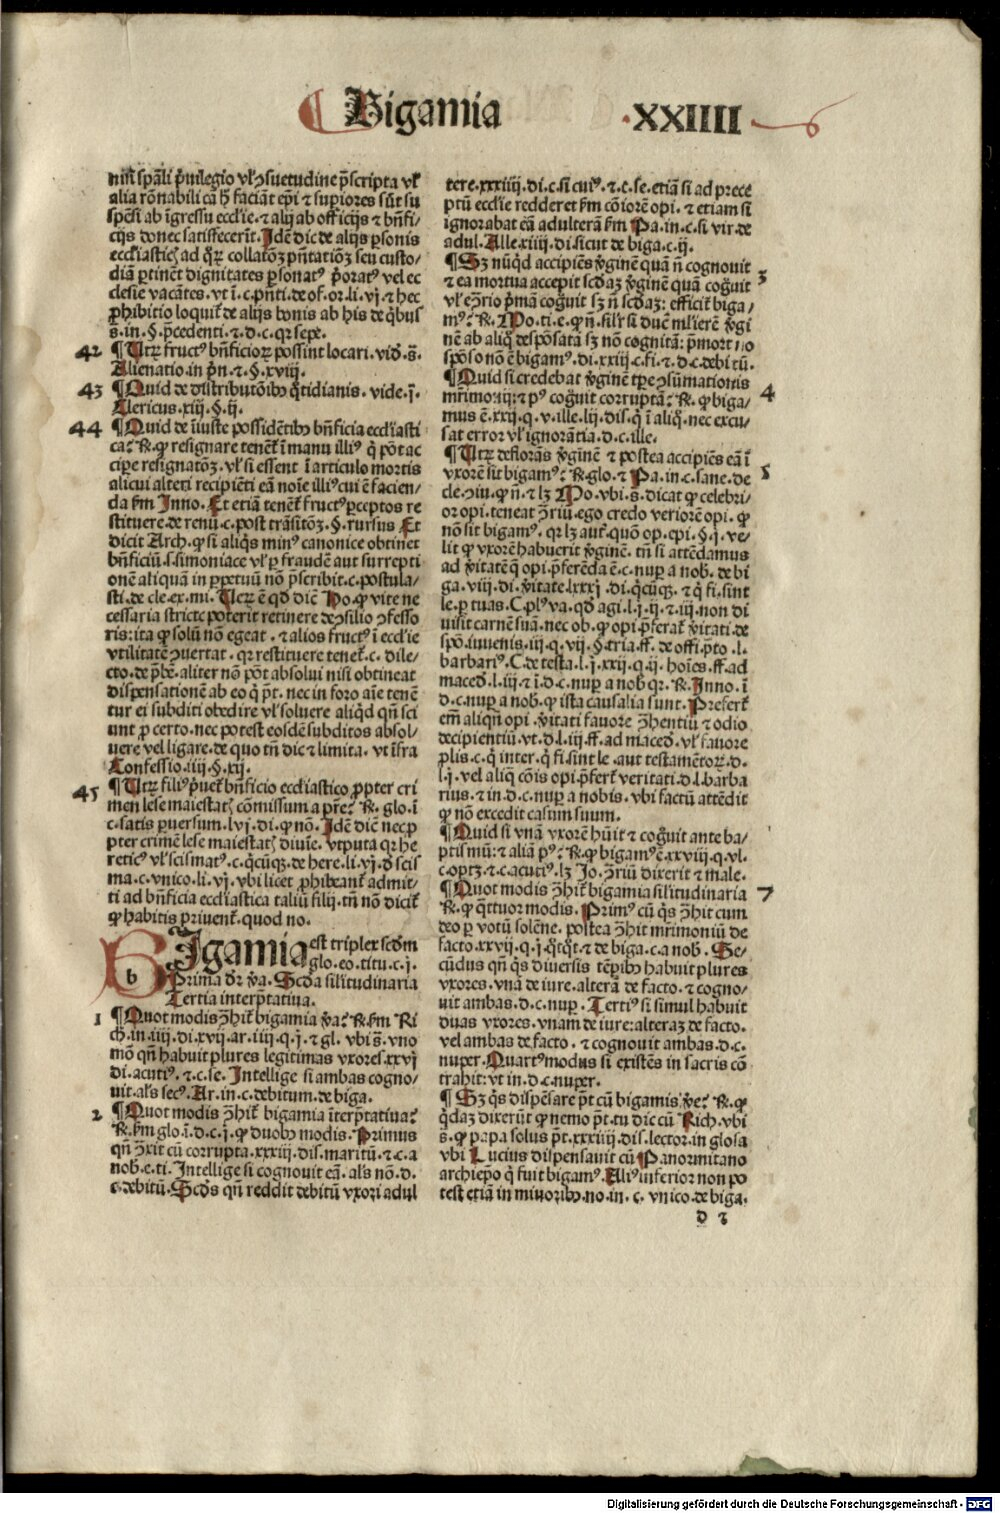 Bigamia
.XXIIII
nisi spāli p̄uilegio vl' ꝯsuetudine p̄scripta vl'
alia rōnabili cā hͦ faciāt ep̄i ⁊ supiores sūt su
spēsi ab īgressu eccl'ie.⁊ alij ab officijs ⁊ bn̄fi/
cijs donec satisfecerīt. Idē dic de alijs ꝑsonis
eccl'iastic̄ ad q̄ꝝ collatōꝫ pn̄tatiōꝫ seu custo/
diā ꝑtinēt dignitates ꝑsonatꝰ p̄oratꝰ vel ec
clesie vacātes.vt ī.c.pn̄ti.de of.or.li.vj.⁊ hec
ꝓhibitio loquit̄ de alijs bonis ab his de q̄bus
s̄.in.§.p̄cedenti.⁊.d.c.qꝛ sepe.
42 ¶ Utꝝ fructꝰ bn̄ficioꝝ possint locari.vid̄.s̄.
Alienatio.in p̄n.⁊.§.xviij.
43 ¶ Quid de distributōibꝰ q̄tidianis.vide.j̄.
Clericus.xiij.§.ij.
44 ¶ Quid de iniuste possidētibꝰ bn̄ficia eccl'iasti
ca? ℞.ꝙ resignare tenet̄ ī manu illiꝰ q̄ pōt ac
cipe resignatōꝫ.vl' si essent ī articulo mortis
alicui alteri recipiēti eā noīe illiꝰ cui ē facien/
da fm̄ Inno. Et etiā tenet̄ fructꝰ ꝑceptos re
stituere.de renū.c.post trāsitōꝫ.§.rursus Et
dicit Arch.ꝙ si aliq̄s minꝰ canonice obtinet
bn̄ficiū.s.simoniace vl' ꝑ fraudē aut surrepti
onē aliquā in ꝑpetuū nō p̄scribit.c.postula/
sti.de cle.ex.mi. Ueꝝ ē qd̄ diē Ho.ꝙ vite ne
cessaria stricte poterit retinere de ꝯsilio ꝯfesso
ris:ita ꝙ solū nō egeat.⁊ alios fructꝰ ī eccl'ie
vtilitatē ꝯuertat.qꝛ restituere tenet̄.c.dile/
cto.de p̄be.aliter nō pōt absolui nisi obtineat
dispensationē ab eo q̄ p̄t.nec in foro aīe tenē
tur ei subditi obedire vl' soluere aliq̄d qn̄ sci
unt ꝓ certo.nec potest eosdē subditos absol/
uere vel ligare.de quo tn̄ dic ⁊ limita.vt īfra
Confessio.iiij.§.xij.
45 ¶ Utꝝ filiꝰ p̄uet̄ bn̄ficio eccl'iastico ꝓpter cri
men lese maiestat̄ cōmissum a pr̄e? ℞.glo.ī
c.satis ꝑuersum.lvj.di.ꝙ nō. Idē diē nec ꝓ
pter crimē lese maiestat̄ diuīe.vtputa qꝛ he
reticꝰ vl' scismatꝰ.c.q̄cūqꝫ.de here.li.vj.d̄ scis
ma.c.vnico.li.vj.vbi licet ꝓhibeant̄ admit/
ti ad bn̄ficia eccl'iastica taliū filij.tn̄ nō dicit̄
ꝙ habitis priuent̄.quod no.
b
BIgamia est triplex scd̄m
glo.eo.titu.c.j.
Prima dr̄ v̄a. Scd̄a silitudinaria
Tertia interp̄tatiua.
1 ¶ Quot modis ꝯhit̄ bigamia v̄a? ℞.fm̄ Ri
ch̄.in.iiij.di.xvij.ar.iiij.q.j.⁊ gl.vbi s̄.vno
mō qn̄ habuit plures legitimas vxores.xxvj
di.acutiꝰ.⁊.c.se. Intellige si ambas cogno/
uit.al's secꝰ. Ar.in.c.debitum.de biga.
2 ¶ Quot modis ꝯhit̄ bigamia īterp̄tatiua?
℞.fm̄ glo.ī.d.c.j.ꝙ duobꝰ modis. Primus
qn̄ ꝯxit cū corrupta.xxxiij.dis.maritū.⁊.c.a
nob̄.e.ti. Intellige si cognouit eā.al's nō.d.
c.debitū. Scd̄s qn̄ reddit debitū vxori adul
tere.xxxiiij.di.c.si cuiꝰ.⁊.c.se.etiā si ad prece
ptū eccl'ie redderet fm̄ cōiorē opi.⁊ etiam si
ignorabat eā adulterā fm̄ Pa.in.c.si vir.de
adul. Alle.xiiij.di.sicut de biga.c.ij.
¶ Sꝫ nūq̄d accipiēs v̄ginē quā n̄ cognouit 3
⁊ ea mortua accepit scd̄aꝫ v̄ginē quā coḡuit
vl' eꝯ̄rio p̄mā coḡuit sꝫ n̄ scd̄aꝫ: efficit̄ biga/
mꝰ? ℞. Ho.ti.e.ꝙ n̄.sil'r si ducē ml'ierē v̄gi
nē ab aliq̄ despōsatā sꝫ nō cognitā: p̄mortuo
spōso nō ē bigamꝰ.di.xxiij.c.fi.⁊.d.c.debitū.
¶ Quid si credebat v̄ginē tp̄e ꝯsūmationis 4
mr̄imonij:⁊ pꝰ coḡuit corruptā? ℞.ꝙ biga/
mus ē.xxij.q.v.ille.lij.dis.q̄ ī aliq̄.nec excu/
sat error vl' ignorātia.d.c.ille.
¶ Utꝝ deflorās v̄ginē ⁊ postea accipiēs eā ī 5
vxorē sit bigamꝰ? ℞.glo.⁊ Pa.in.c.sane.de
cle.ꝯiu.ꝙ n̄.⁊ lꝫ Ho.vbi.s̄.dicat ꝙ celebri/
or opi.teneat ꝯ̄riū.ego credo veriorē opi.ꝙ
nō sit bigamꝰ.qꝛ lꝫ aut̄.quō op.epi.§.j.ve/
lit ꝙ vxorē habuerit v̄ginē.tn̄ si attēdamus
ad v̄itatē q̄ opi.p̄ferēda ē.c.nuꝑ a nob̄.de bi
ga.viij.di.v̄itate.lxxxj.di.q̄cūqꝫ.⁊ q̄ fi.sint
le.ꝑ tuas. C.pl'va.qd̄ agi.l.j.ij.⁊ iij.non di
uisit carnē suā.nec ob.ꝙ opi.p̄ferat̄ v̄itati.de
spō.iuuenis.iij.q.vij.§.tria.ff.de offi.p̄to.l.
barbariꝰ. C.de testa.l.j.xxij.q.ij.hoīes.ff.ad
maced̄.l.iij.⁊ ī.d.c.nuꝑ a nob̄ qꝛ. ℞. Inno.ī
d.c.nuꝑ a nob̄.ꝙ ista causalia sunt. Prefert̄
em̄ aliqn̄ opi.v̄itati fauore ꝯhentiū ⁊ odio
decipientiū.vt.d.l.iij.ff.ad maced̄.vl' fauore
ꝓlis.c.q̄ inter.q̄ fi.sint le.aut testamētoꝝ.d.
l.j.vel aliq̄ cōis opi.p̄fert̄ veritati.d.l.barba
rius.⁊ in.d.c.nuꝑ a nobis.vbi factū attēdit
ꝙ nō excedit casum suum.
¶ Quid si vnā vxorē hūit ⁊ coḡuit ante ba/
ptismū:⁊ aliā pꝰ? ℞.ꝙ bigamꝰ ē.xxviij.q.vl.
c.optꝫ.⁊.c.acutiꝰ.lꝫ Jo.ꝯ̄riū dixerit ⁊ male.
¶ Quot modis ꝯhit̄ bigamia silitudinaria 7
℞.ꝙ q̄ttuor modis. Primꝰ cū q̄s ꝯhit cum
deo ꝑ votū solēne.postea ꝯhit mr̄imoniū de
facto.xxvij.q.j.q̄tq̄t.⁊ de biga.c.a nob̄. Se/
cūdus qn̄ q̄s diuersis tēꝑibꝰ habuit plures
vxores.vnā de iure.alterā de facto.⁊ cogno/
uit ambas.d.c.nuꝑ. Tertiꝰ si simul habuit
duas vxores.vnam de iure:alteraꝫ de facto.
vel ambas de facto.⁊ cognouit ambas.d.c.
nuper. Quartꝰ modus si existēs in sacris cō
trahit:vt in.d.c.nuper.
¶ Sꝫ q̄s dispēsare p̄t cū bigamis v̄e? ℞.ꝙ
q̄daꝫ dixerūt ꝙ nemo p̄t.tu dic cū Rich.vbi
s̄.ꝙ papa solus p̄t.xxxiiij.dis.lector.in glosa
vbi Lucius dispensauit cū Panormitano
archiep̄o q̄ fuit bigamꝰ. Aliꝰ inferior non po
test etiā in minoribꝰ.no.in.c.vnico.de biga.
d 2
Digitalisierung gefördert durch die Deutsche Forschungsgemeinschaft - DFG